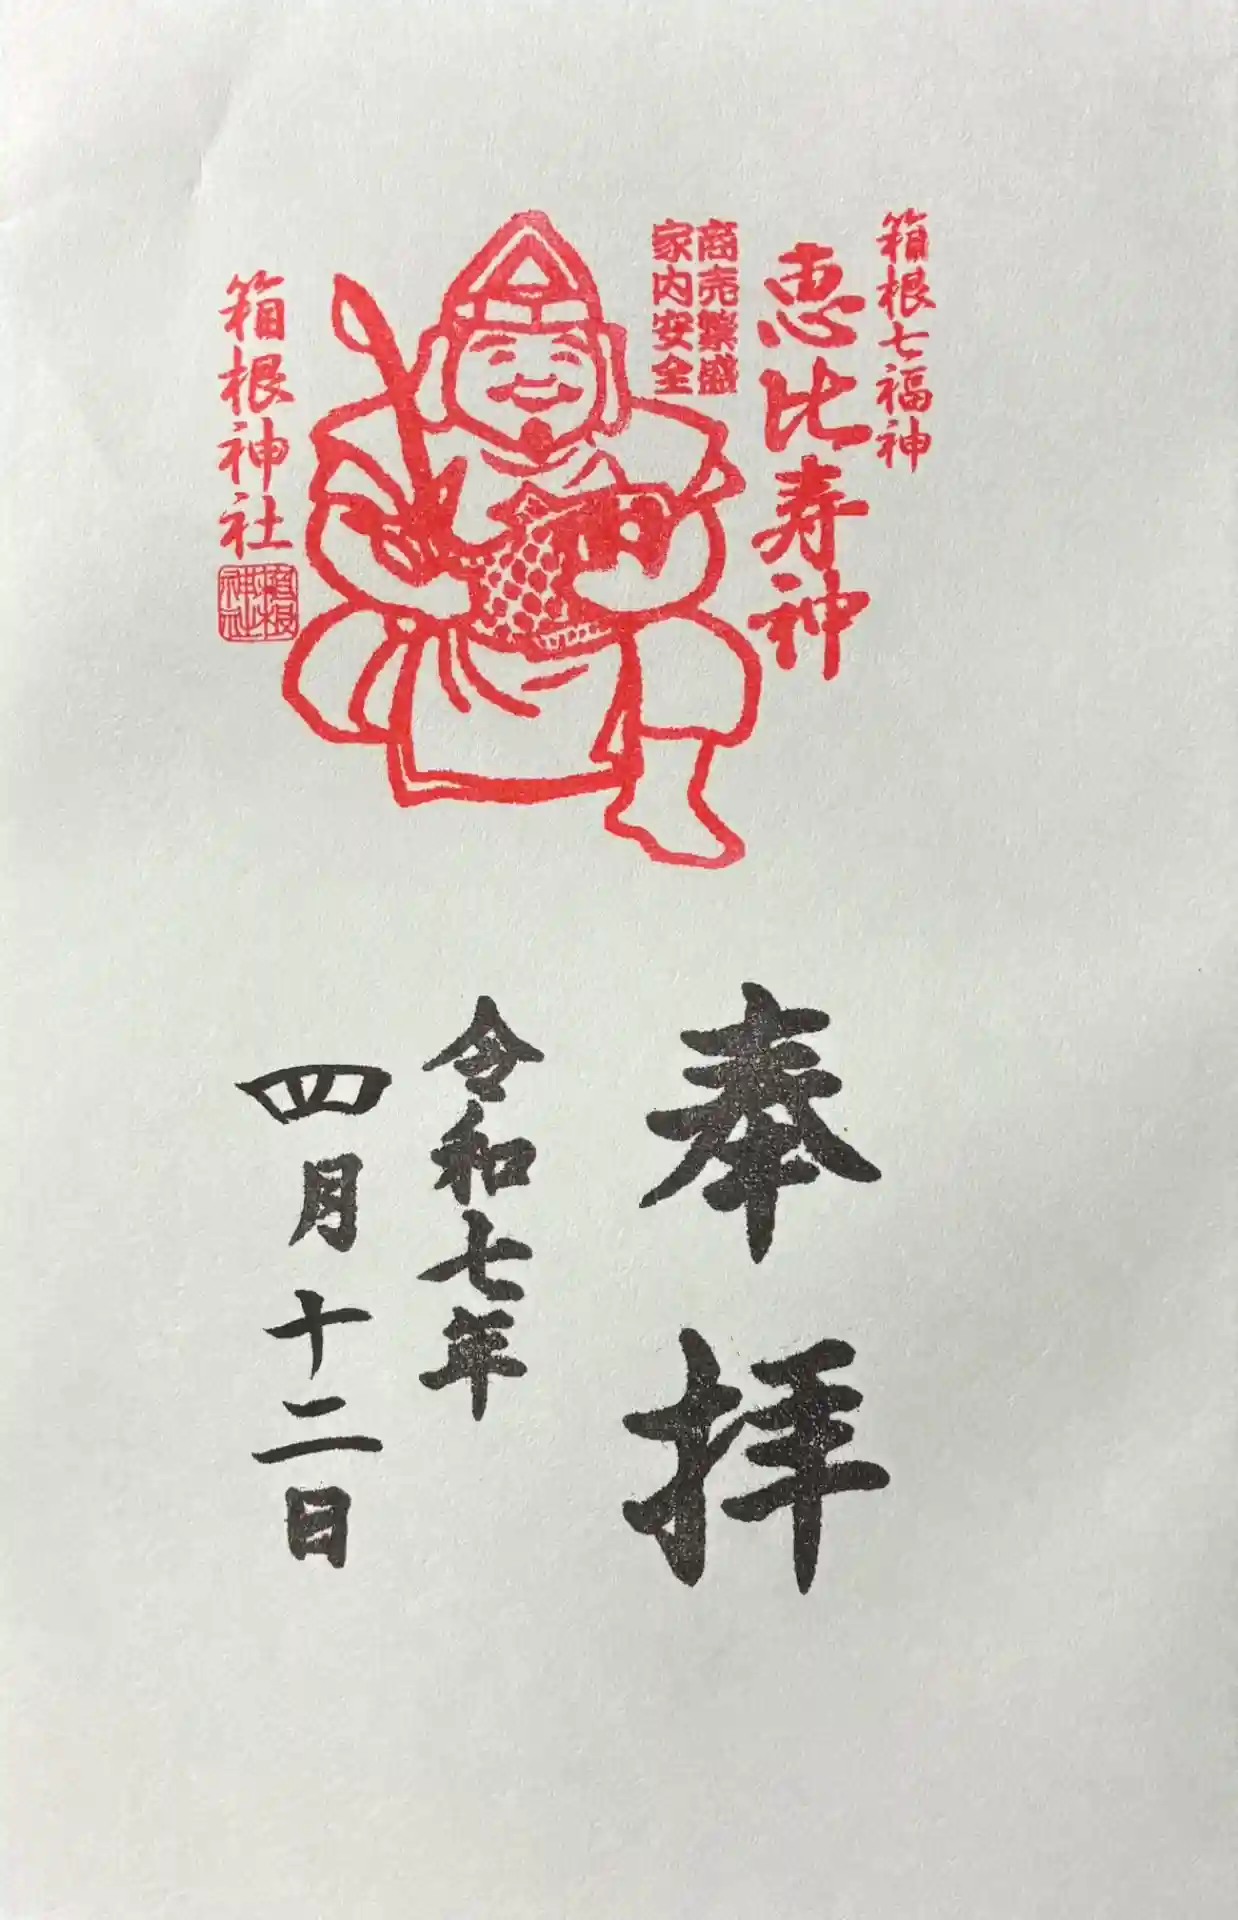 箱根七福神
恵比寿神
商売繁盛
家内安全
箱根神社
箱根
神社
奉拝
令和七年
四月十二日